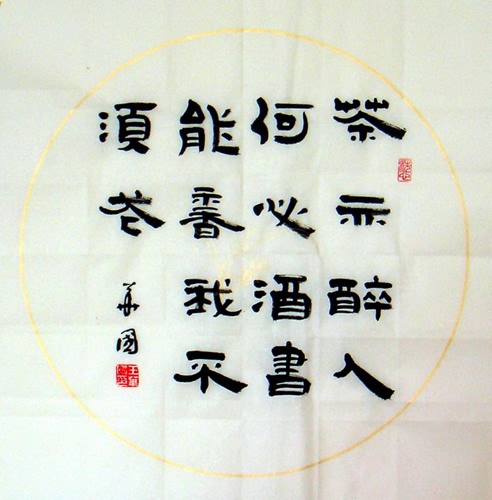 茶亦醉人
何必酒書
能香我不
須花
華國